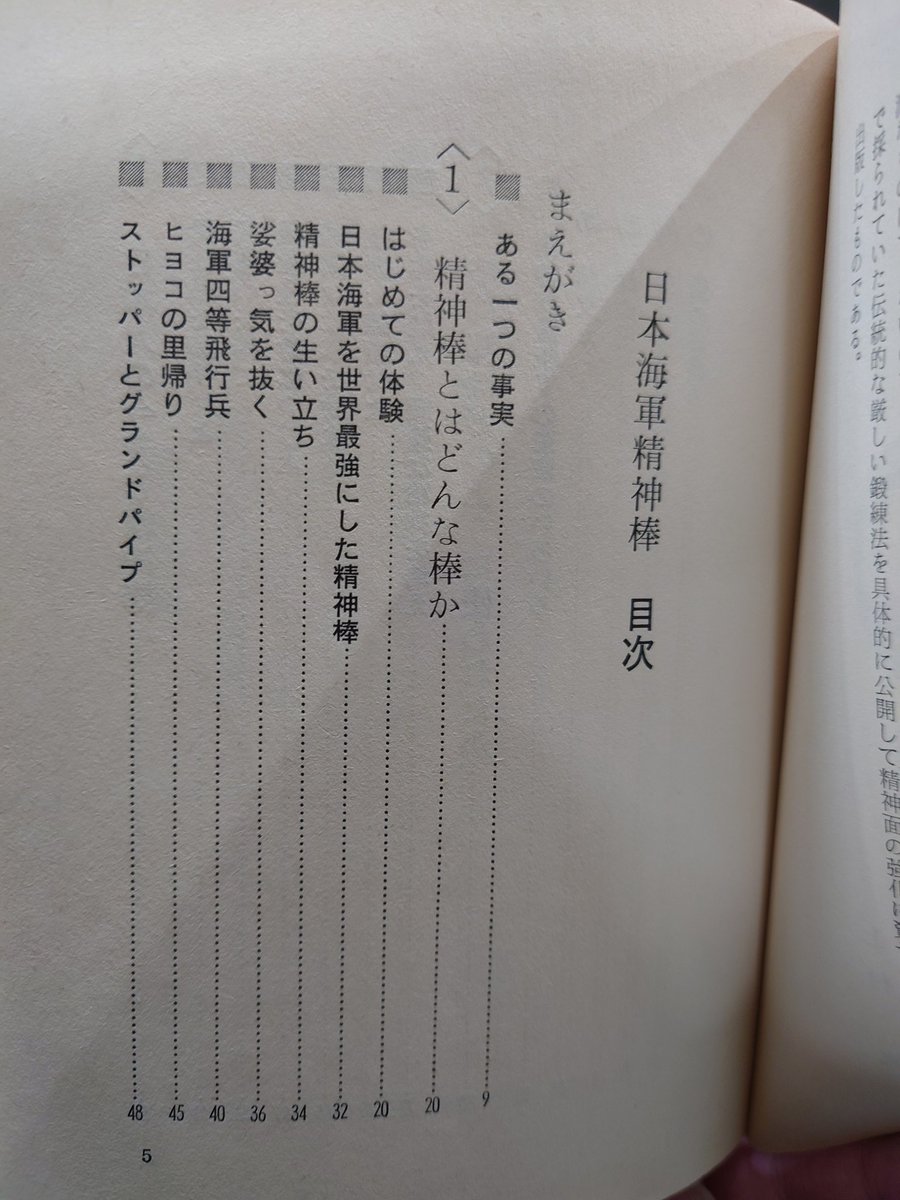 で採られていた伝統的な厳しい鍛練法を具体的に公開して精神面の強化に
出版したものである。
日本海軍精神棒 目次
まえがき
■ ある一つの事実 …… 9
〈1〉 精神棒とはどんな棒か …… 20
■ はじめての体験 …… 20
■ 日本海軍を世界最強にした精神棒 …… 32
■ 精神棒の生い立ち …… 34
■ 娑婆っ気を抜く …… 36
■ 海軍四等飛行兵 …… 40
■ ヒヨコの里帰り …… 45
■ ストッパーとグランドパイプ …… 48
5